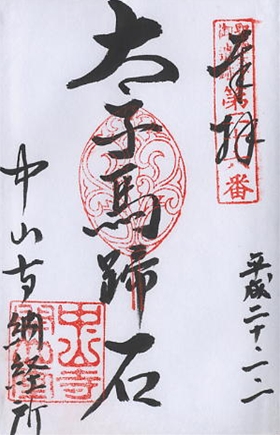 奉拝
平成二十
太子馬蹄石
中山寺納経所
中山寺